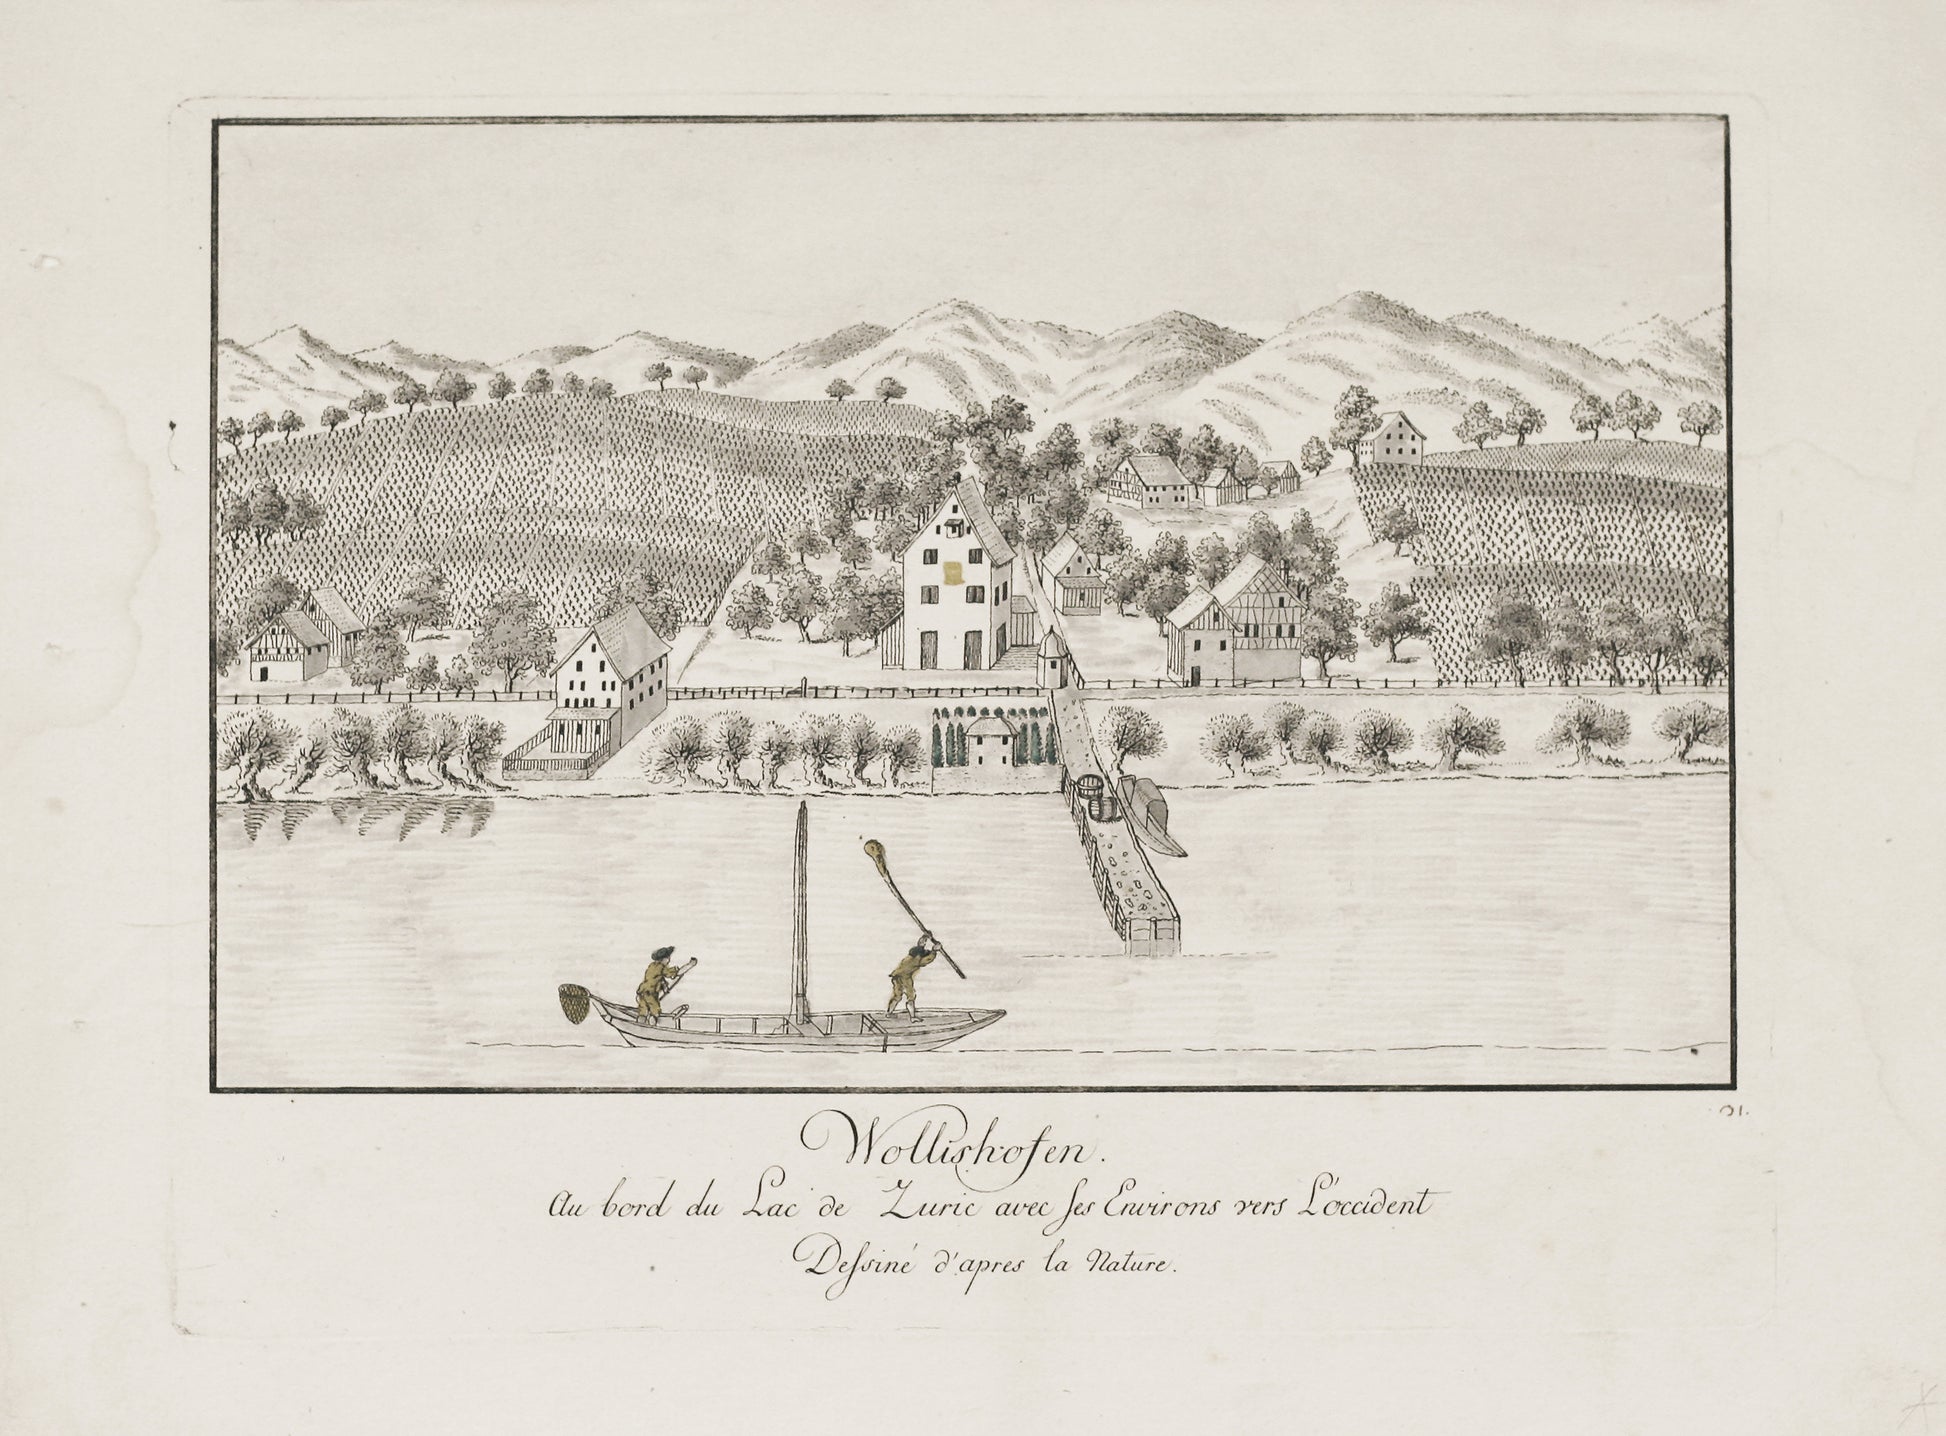 Wollishofen.
Au bord du Lac de Zuric avec ses Environs vers L'occident
Dessiné d'apres la Nature.